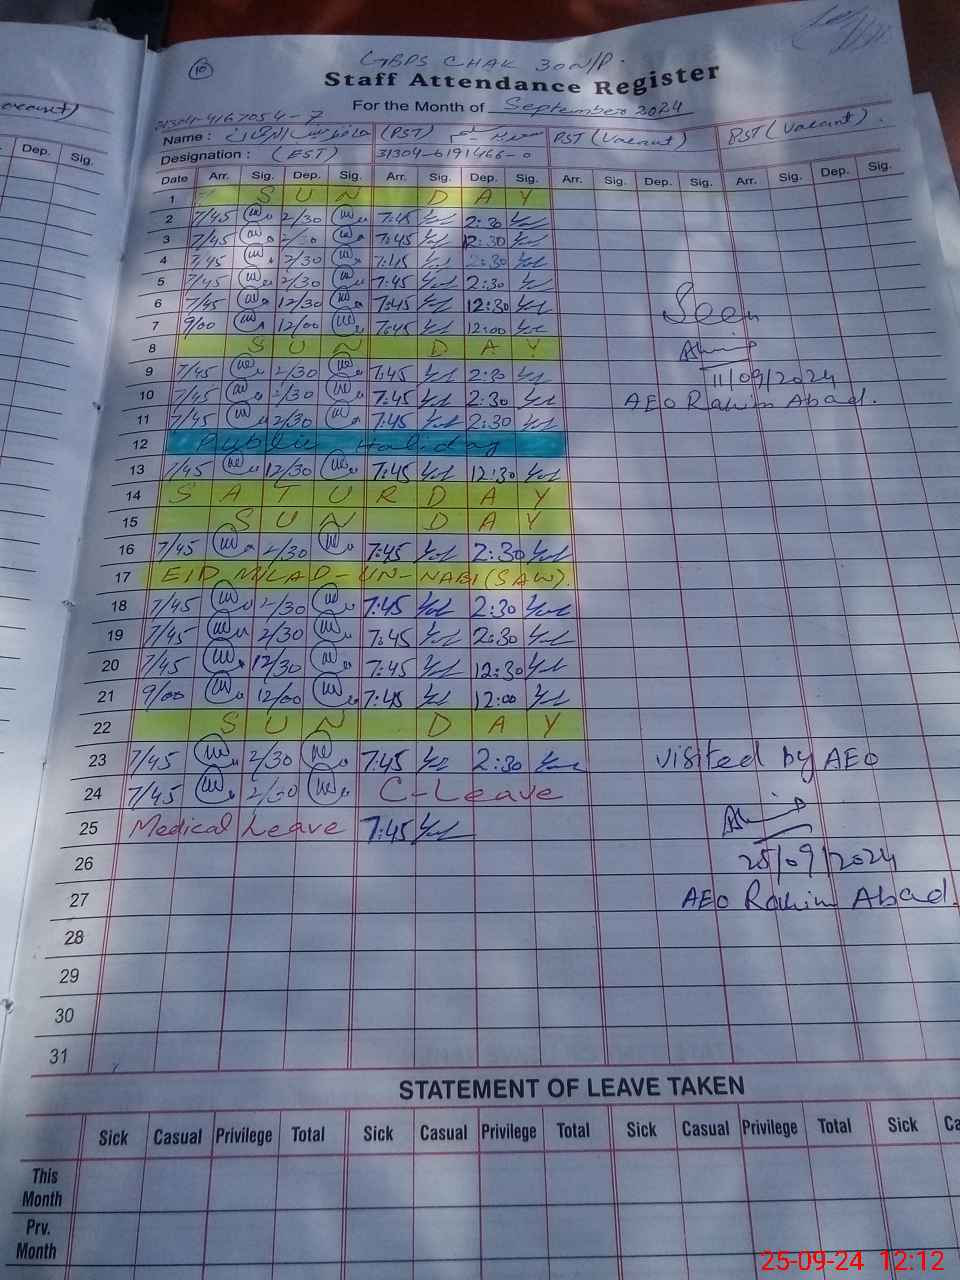 10
GBPS CHAK 30N/P.
Staff Attendance Register
For the Month of September 2024
31304-4167054-7
Name : (PST) PST (Vacant) PST (Vacant).
Designation : (EST) 31304-6191466-0
Dep. Sig.
Date Arr. Sig. Dep. Sig. Arr. Sig. Dep. Sig. Arr. Sig. Dep. Sig. Arr. Sig. Dep. Sig.
1 S U N D A Y
2 7/45 2/30 7:45 2:30
3 7/45 2/30 7:45 2:30
4 7/45 2/30 7:45 2:30
5 7/45 2/30 7:45 2:30
6 7/45 12/30 7:45 12:30
Seen
7 9/00 12/00 7:45 12:00
8 S U N D A Y
9 7/45 2/30 7:45 2:30
11/09/2024
10 7/45 2/30 7:45 2:30
AEO Rahim Abad.
11 7/45 2/30 7:45 2:30
12 Public Holiday
13 7/45 12/30 7:45 12:30
14 S A T U R D A Y
15 S U N D A Y
16 7/45 2/30 7:45 2:30
17 EID MILAD-UN-NABI (SAW).
18 7/45 2/30 7:45 2:30
19 7/45 2/30 7:45 2:30
20 7/45 12/30 7:45 12:30
21 9/00 12/00 7:45 12:00
22 S U N D A Y
23 7/45 2/30 7:45 2:30 visited by AEO
24 7/45 2/30 C-Leave
25 Medical Leave 7:45
26 25/09/2024
27 AEO Rahim Abad.
28
29
30
31
STATEMENT OF LEAVE TAKEN
Sick Casual Privilege Total Sick Casual Privilege Total Sick Casual Privilege Total Sick Ca
This Month
Prv. Month
25-09-24 12:12